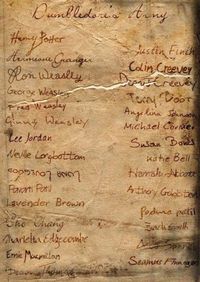 Dumbledore's Army
Harry Potter
Hermione Granger
Ron Weasley
George Weasley
Fred Weasley
Ginny Weasley
Lee Jordan
Neville Longbottom
Parvati Patil
Lavender Brown
Cho Chang
Marietta Edgecombe
Ernie Macmillan
Dean Thomas
Justin Finch
Colin Creevey
Dennis Creevey
Terry Boot
Angelina Johnson
Michael Corner
Susan Bones
Katie Bell
Hannah Abbott
Anthony Goldstein
Padma patil
Zach Smith
Seamus Finnigan